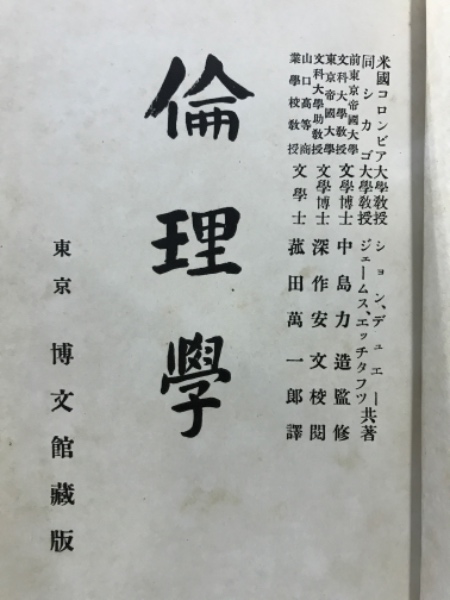 米國コロンビア大學敎授 ション、デュエー
同シカゴ大學敎授 ジェームス、エッチタフツ 共著
前東京帝國大學文科大學敎授 文學博士 中島力造監修
東京帝國大學文科大學助敎授 文學博士 深作安文校閱
山口高等商業學校敎授 文學士 菰田萬一郎譯
倫理學
東京 博文館藏版